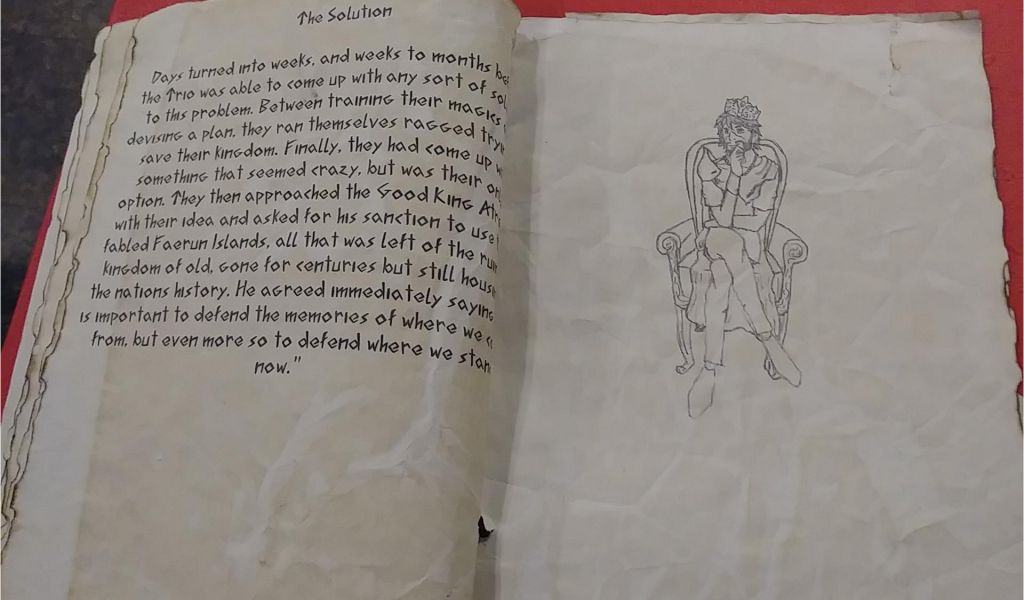 The Solution
Days turned into weeks, and weeks to months
the Trio was able to come up with any sort of
to this problem. Between training their magics
devising a plan, they ran themselves ragged
save their kingdom. Finally, they had come up
something that seemed crazy, but was their
option. They then approached the Good King
with their idea and asked for his sanction to use
fabled Faerun Islands, all that was left of the
kingdom of old, gone for centuries but still
the nations history. He agreed immediately saying
is important to defend the memories of where we
from, but even more so to defend where we
now."